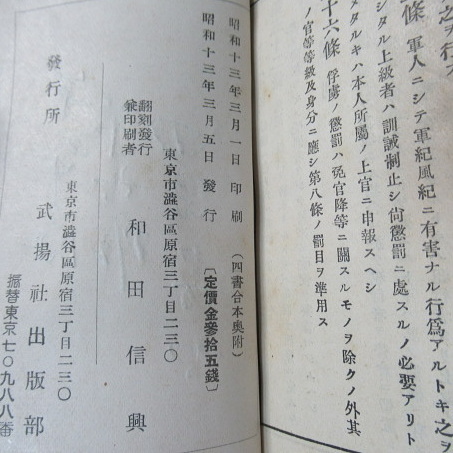 之ヲ行フ
條　軍人ニシテ軍紀風紀ニ有害ナル行爲アルトキ之ヲ
シタル上級者ハ訓誡制止シ尙懲罰ニ處スルノ必要アリト
スタルキハ本人所屬ノ上官ニ申報スヘシ
十六條　俘虜ノ懲罰ハ免官降等ニ關スルモノヲ除クノ外其
ノ官等等級及身分ニ應シ第八條ノ罰目ヲ準用ス
昭和十三年三月一日印刷（四書合本奥附）
昭和十三年三月五日發行〔定價金參拾五錢〕
東京市澁谷區原宿三丁目二三〇
翻刻發行
兼印刷者　和田信興
東京市澁谷區原宿三丁目二三〇
發行所　武揚社出版部
振替東京七〇九八八番